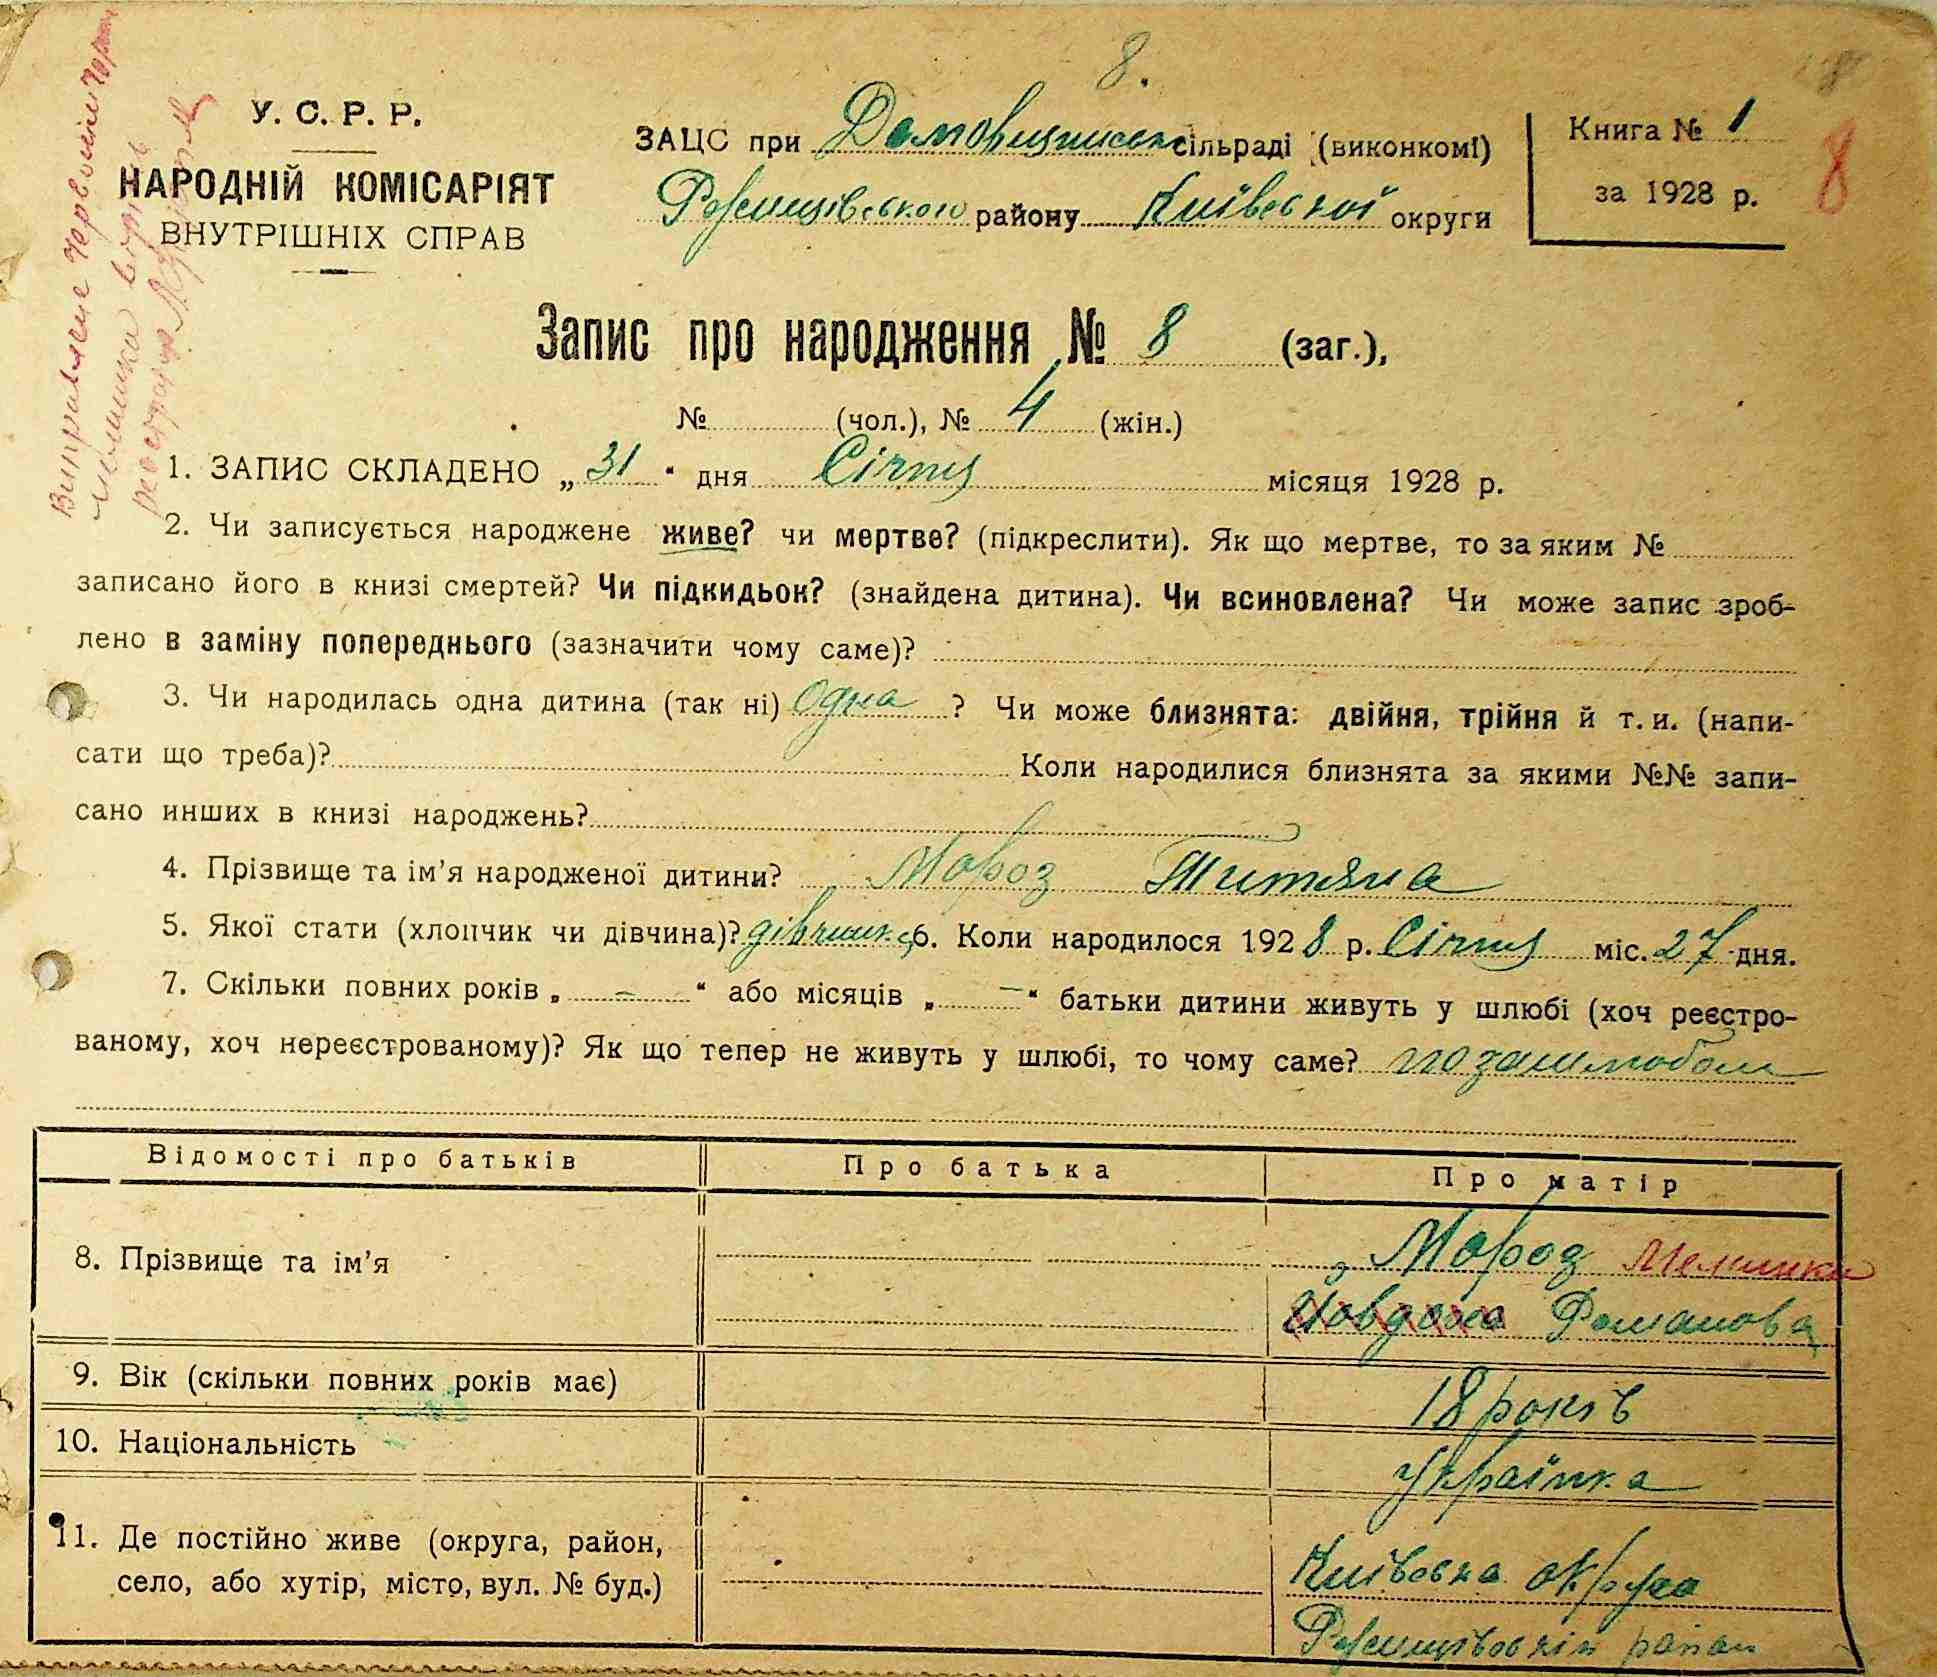 8.
У. С. Р. Р.
НАРОДНІЙ КОМІСАРІЯТ
ВНУТРІШНІХ СПРАВ
ЗАЦС при сільраді (виконкомі)
Ржищівського району Київської округи
Книга № 1
за 1928 р.
8
Виправлене червоним чорни
вірне
Запис про народження № 8 (заг.),
№ (чол.), № 4 (жін.)
1. ЗАПИС СКЛАДЕНО „ 31 “ дня Січня місяця 1928 р.
2. Чи записується народжене живе? чи мертве? (підкреслити). Як що мертве, то за яким №
записано його в книзі смертей? Чи підкидьок? (знайдена дитина). Чи всиновлена? Чи може запис зроб-
лено в заміну попереднього (зазначити чому саме)?
3. Чи народилась одна дитина (так ні) Одна ? Чи може близнята: двійня, трійня й т. и. (напи-
сати що треба)? Коли народилися близнята за якими №№ запи-
сано инших в книзі народжень?
4. Прізвище та ім’я народженої дитини? Мороз Титяна
5. Якої стати (хлопчик чи дівчина)? дівчинка 6. Коли народилося 1928 р. Січня міс. 27 дня.
7. Скільки повних років „ – “ або місяців „ – “ батьки дитини живуть у шлюбі (хоч реєстро-
ваному, хоч нереєстрованому)? Як що тепер не живуть у шлюбі, то чому саме? позашлюбом
Відомості про батьків Про батька Про матір
8. Прізвище та ім’я Мороз Мелашка
Йовдоха Романова
9. Вік (скільки повних років має) 18 років
10. Національність Українка
11. Де постійно живе (округа, район, Київська округа
село, або хутір, місто, вул. № буд.) Ржищівський район